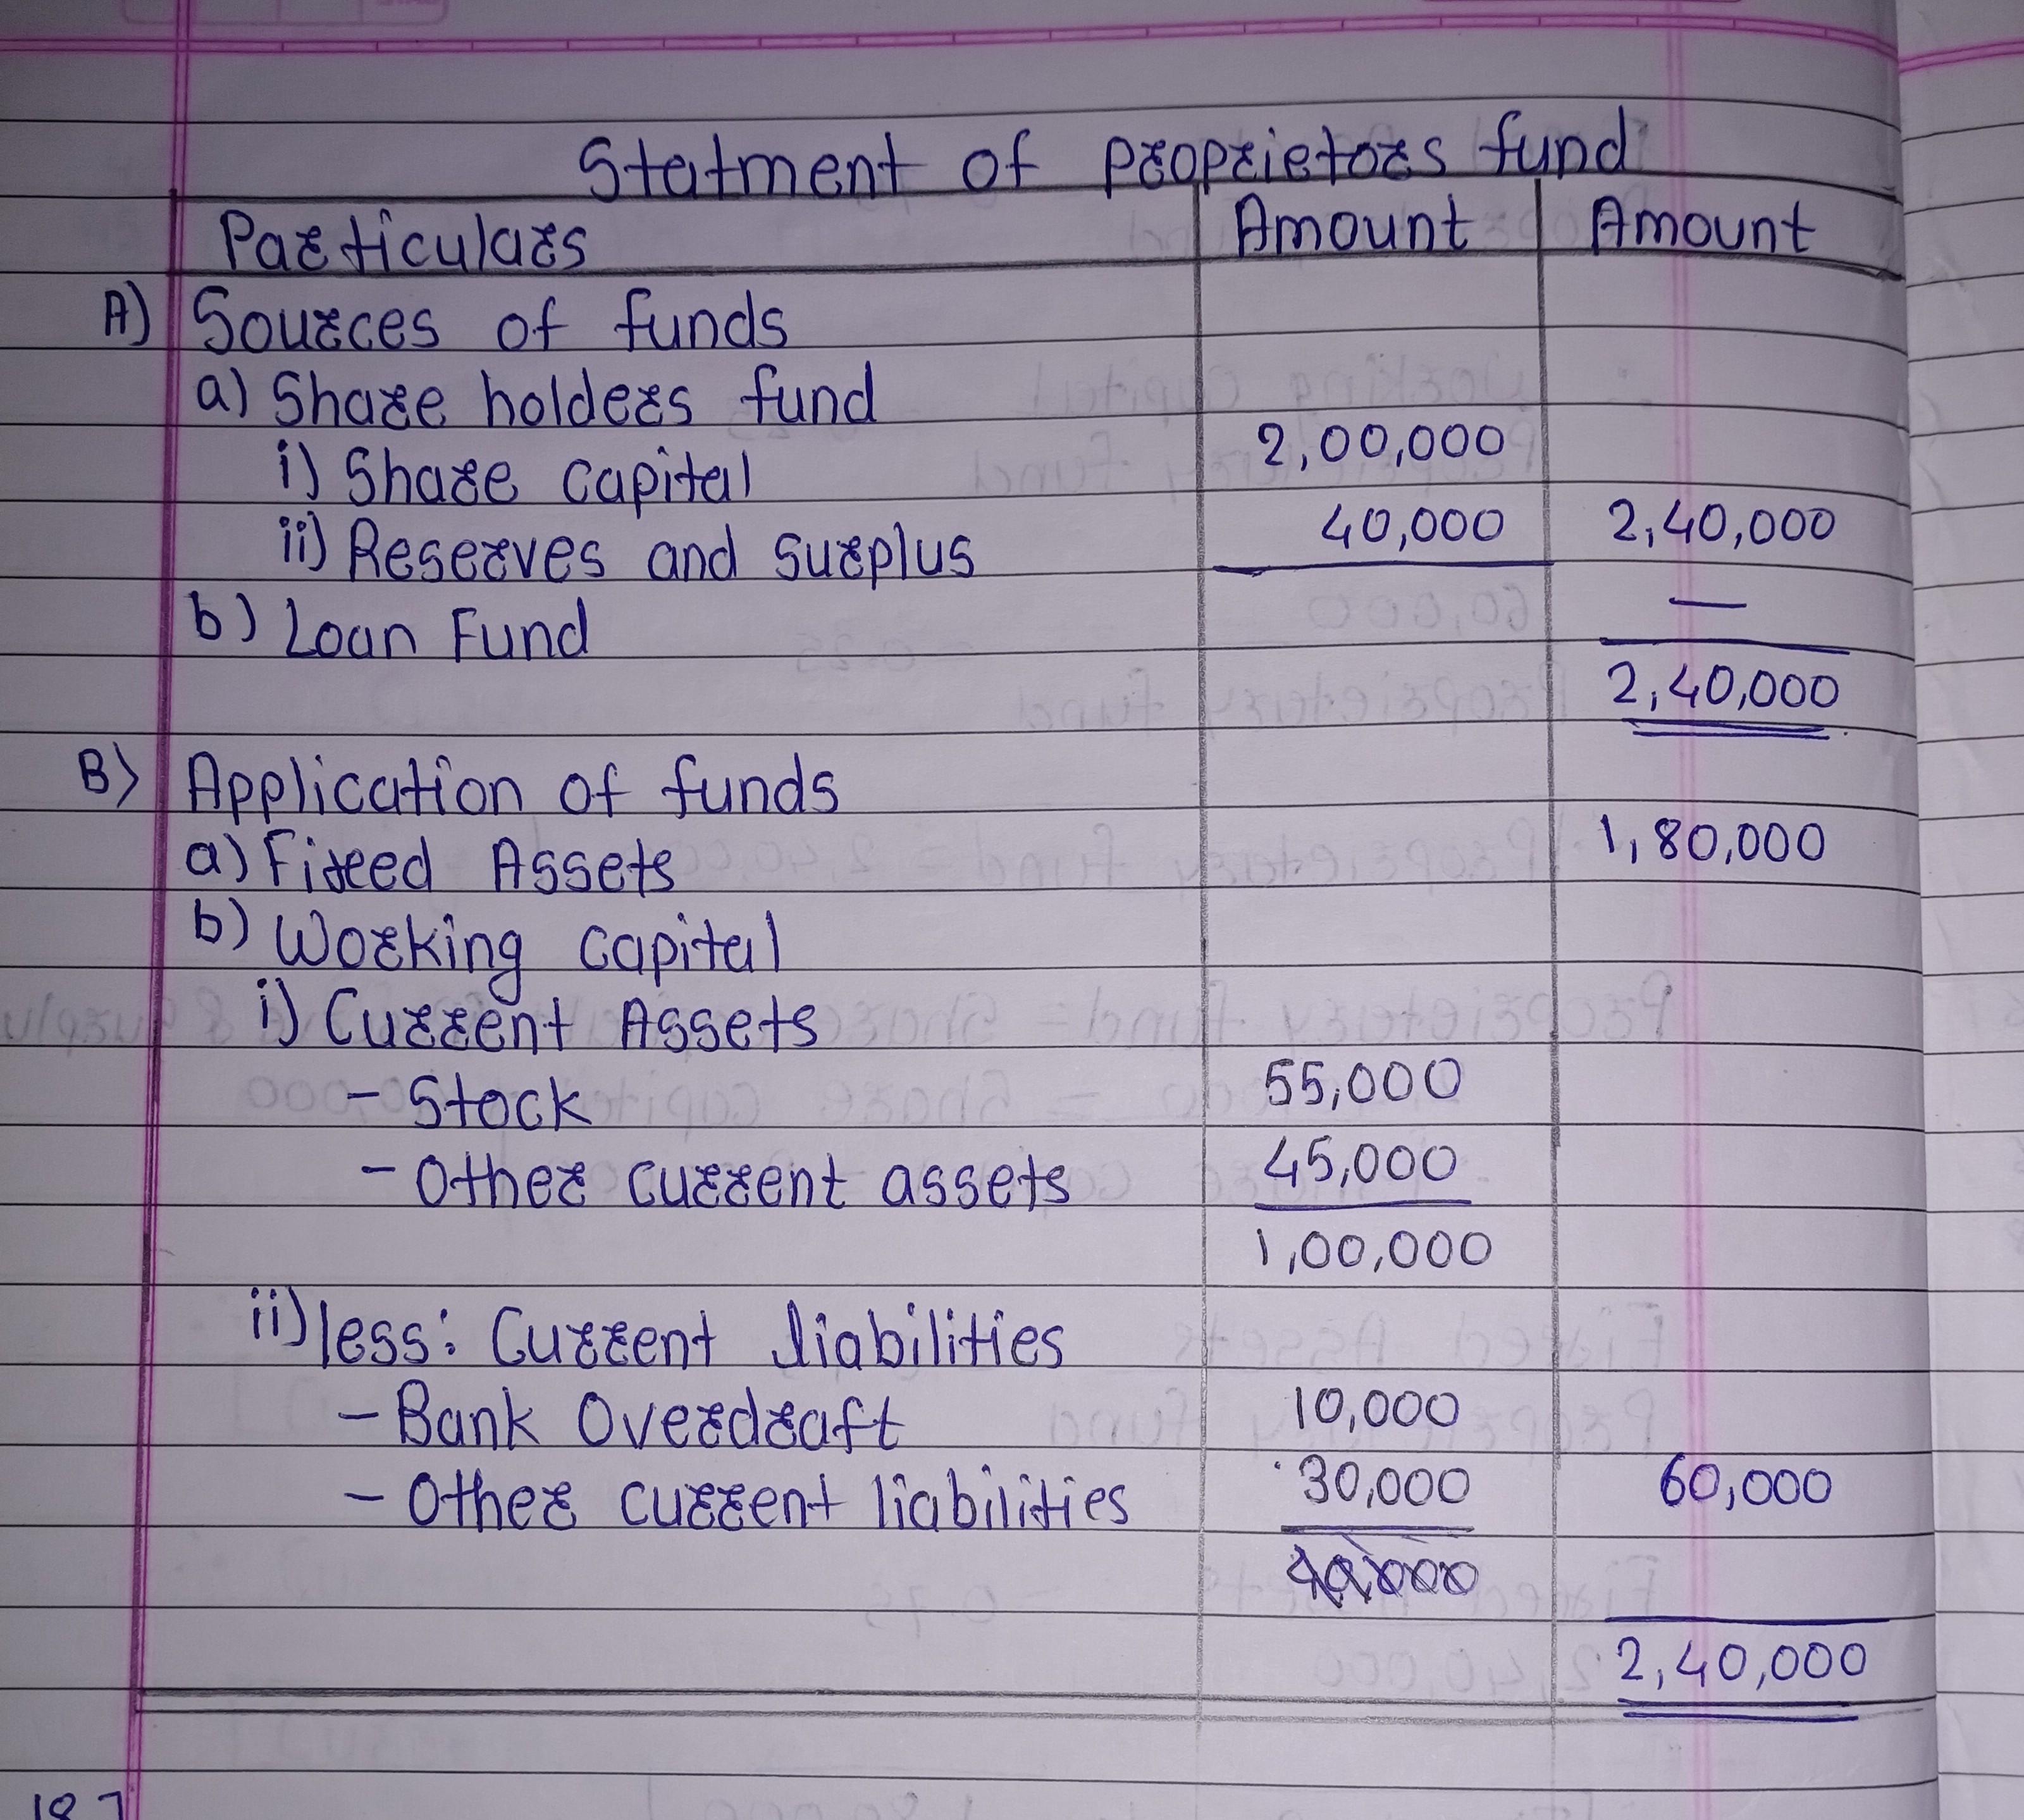 Statment of proprietors fund
Particulars Amount Amount
A) Sources of funds
a) Share holders fund
i) Share capital 2,00,000
ii) Reserves and surplus 40,000 2,40,000
b) Loan Fund —
2,40,000
B) Application of funds
a) Fixed Assets 1,80,000
b) Working capital
i) Current Assets
- Stock 55,000
- Other current assets 45,000
1,00,000
ii) less: Current liabilities
- Bank Overdraft 10,000
- Other current liabilities 30,000 60,000
40,000
2,40,000